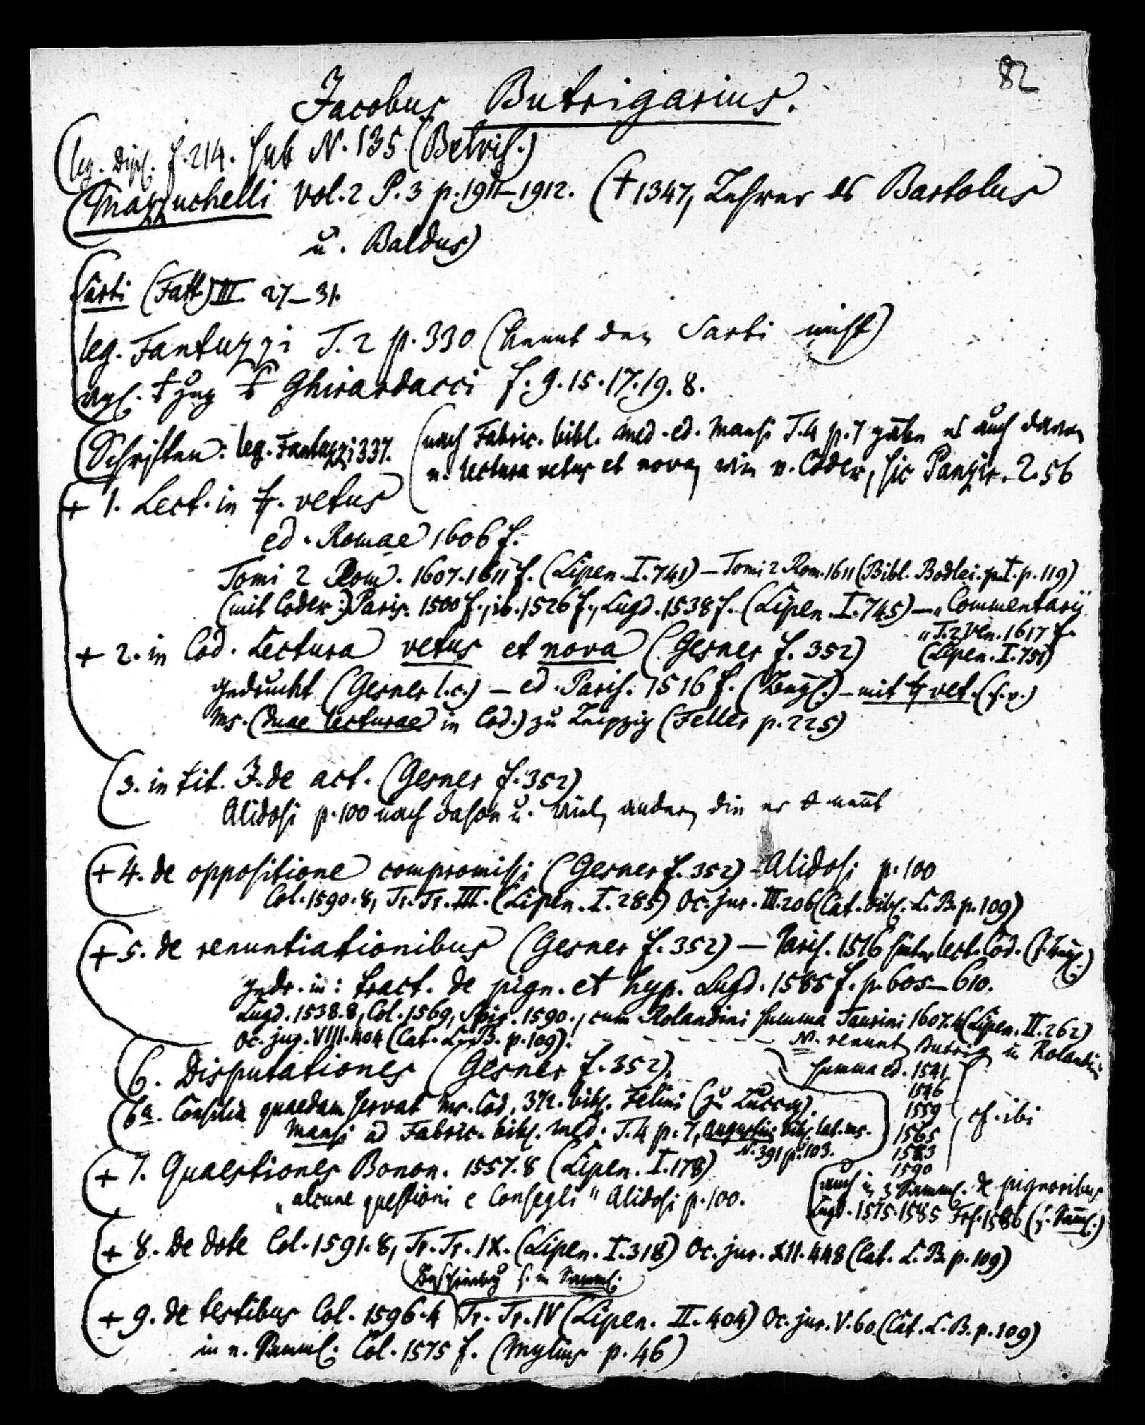 82
Jacobus Butrigarius.
(leg. Dipl. f. 214. sub N. 135 (Betris.)
(Mazzuchelli vol. 2 P. 3 p. 1911–1912. († 1347, Lehrer des Bartolus
u. Baldus)
Sarti (Fatt.) III. 27–31.
leg. Fantuzzi T. 2 p. 330 (kennt den Sarti nicht)
vgl. Ghirardacci f. 9. 15. 17. 19. 8.
(Schriften: leg. Fantuzzi 337. (nach Fabric. bibl. med. ed. Mansi T. 4 p. 7 gäbe es auch davon
e. lectura vetus et nova, wie v. Codex, sic Panzir. 2. 56
+ 1. Lect. in ff. vetus
ed. Romae 1606 f.
Tomi 2 Rom. 1607. 1611 f. (Lipen. I. 741) – Tomi 2 Rom. 1611 (Bibl. Bodlei. p. I. p. 119)
(mit Codex:) Paris. 1500 f., ib. 1526 f., Lugd. 1538 f. (Lipen. I. 745) – „Commentarij
„T. 2 Ven. 1617 f.
(Lipen. I. 751)
+ 2. in Cod. Lectura vetus et nova (Gesner f. 352)
gedruckt (Gesner l. c.) – ed. Paris. 1516 f. – mit ff vet. (s. v.)
Ms. (duae lecturae in Cod.) zu Leipzig (Feller p. 225)
(3. in tit. J. de act. (Gesner f. 352)
Alidosi p. 100 nach Jason u. viel andern die er nennt
+ 4. de oppositione compromissi (Gesner f. 352) – Alidosi p. 100
Col. 1590. 8, Tr. Tr. III. (Lipen. I. 285) Oc. jur. III. 206 (Cat. bibl. L. B. p. 109)
+ 5. de renuntiationibus (Gesner f. 352) – Paris. 1516 hinter lect. Cod.
gedr. in: tract. de pign. et hyp. Lugd. 1585 f. p. 605–610.
Lugd. 1538. 8, Col. 1569, Spir. 1590., cum Rolandini summa Taurini 1607. 4 (Lipen. II. 262)
Oc. jur. VIII. 404 (Cat. L. B. p. 109).
N. renunt Butrig. in Rolandini
summa ed. 1541.
1546
1559
1565
1583
1590
cf. ibi
6. Disputationes (Gesner f. 352).
(6a. Consilia quaedam servat Ms. Cod. 372. bibl. Felini (zu Lucca).
Mansi ad Fabric. bibl. med. T. 4 p. 7, Augustin. bibl. lat. ms.
N. 391 p. 103.
+ 7. Quaestiones Bonon. 1557. 8 (Lipen. I. 178)
„alcune questioni e Consegli" Alidosi p. 100.
(auch in 3 Samml. de pignoribus
Lugd. 1575. 1585 Frf. 1586 (s. Samml.)
+ 8. de dote Col. 1591. 8, Tr. Tr. IX. (Lipen. I. 318) Oc. jur. XII. 448 (Cat. L. B. p. 109)
(Beschreibung s. in Samml.
+ 9. de testibus Col. 1596. 4 Tr. Tr. IV (Lipen. II. 404) Oc. jur. V. 60 (Cat. L. B. p. 109)
in e. Samml. Col. 1575 f. (Mylius p. 46)